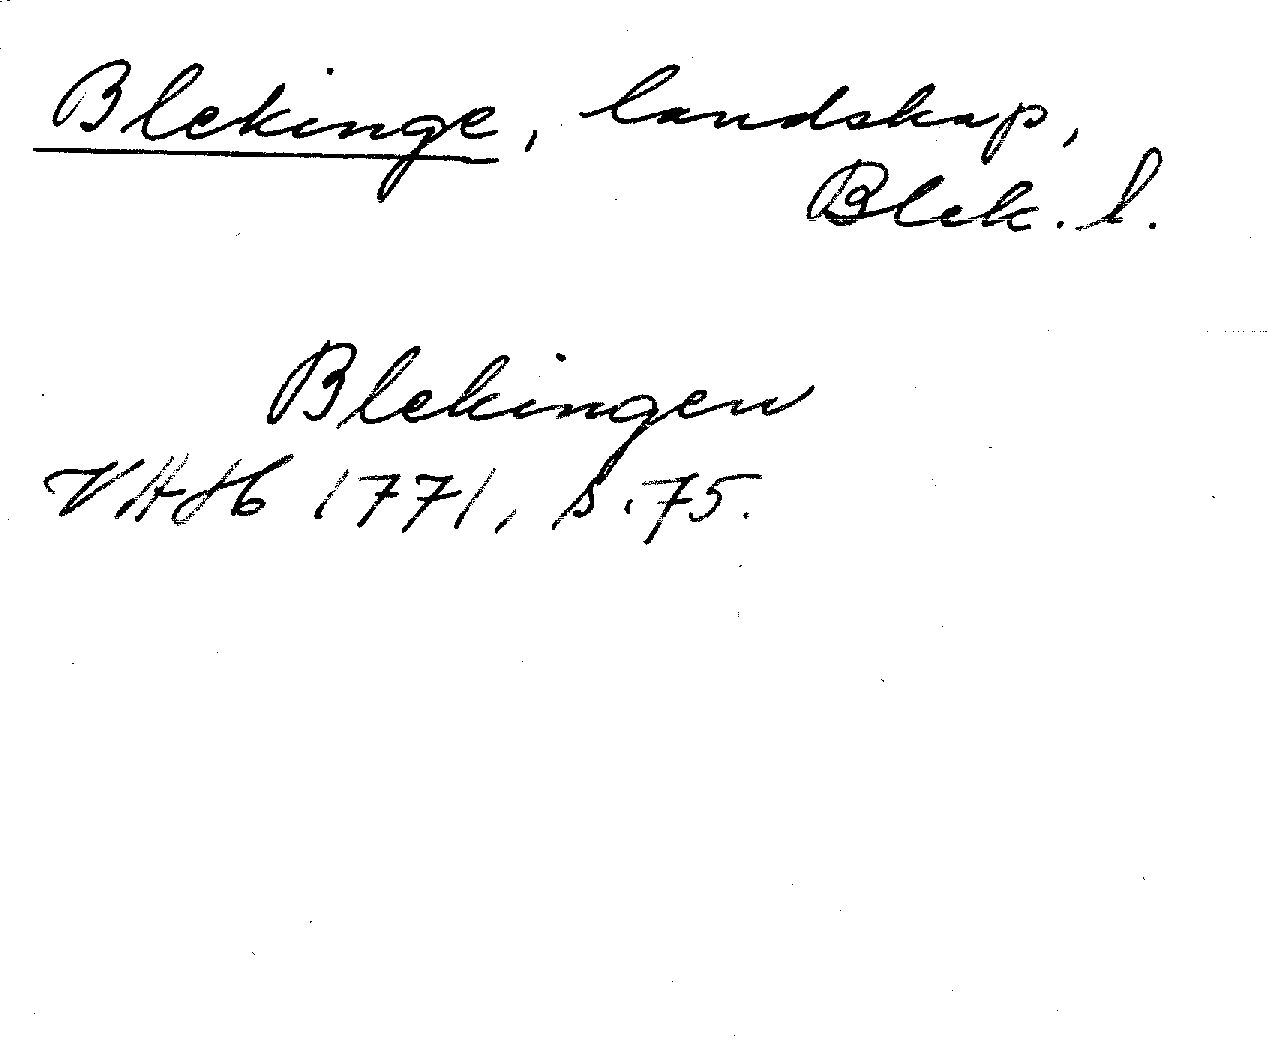 Blekinge, landskap,
Blek. l.
Blekingen
VAH 1771, s. 75.